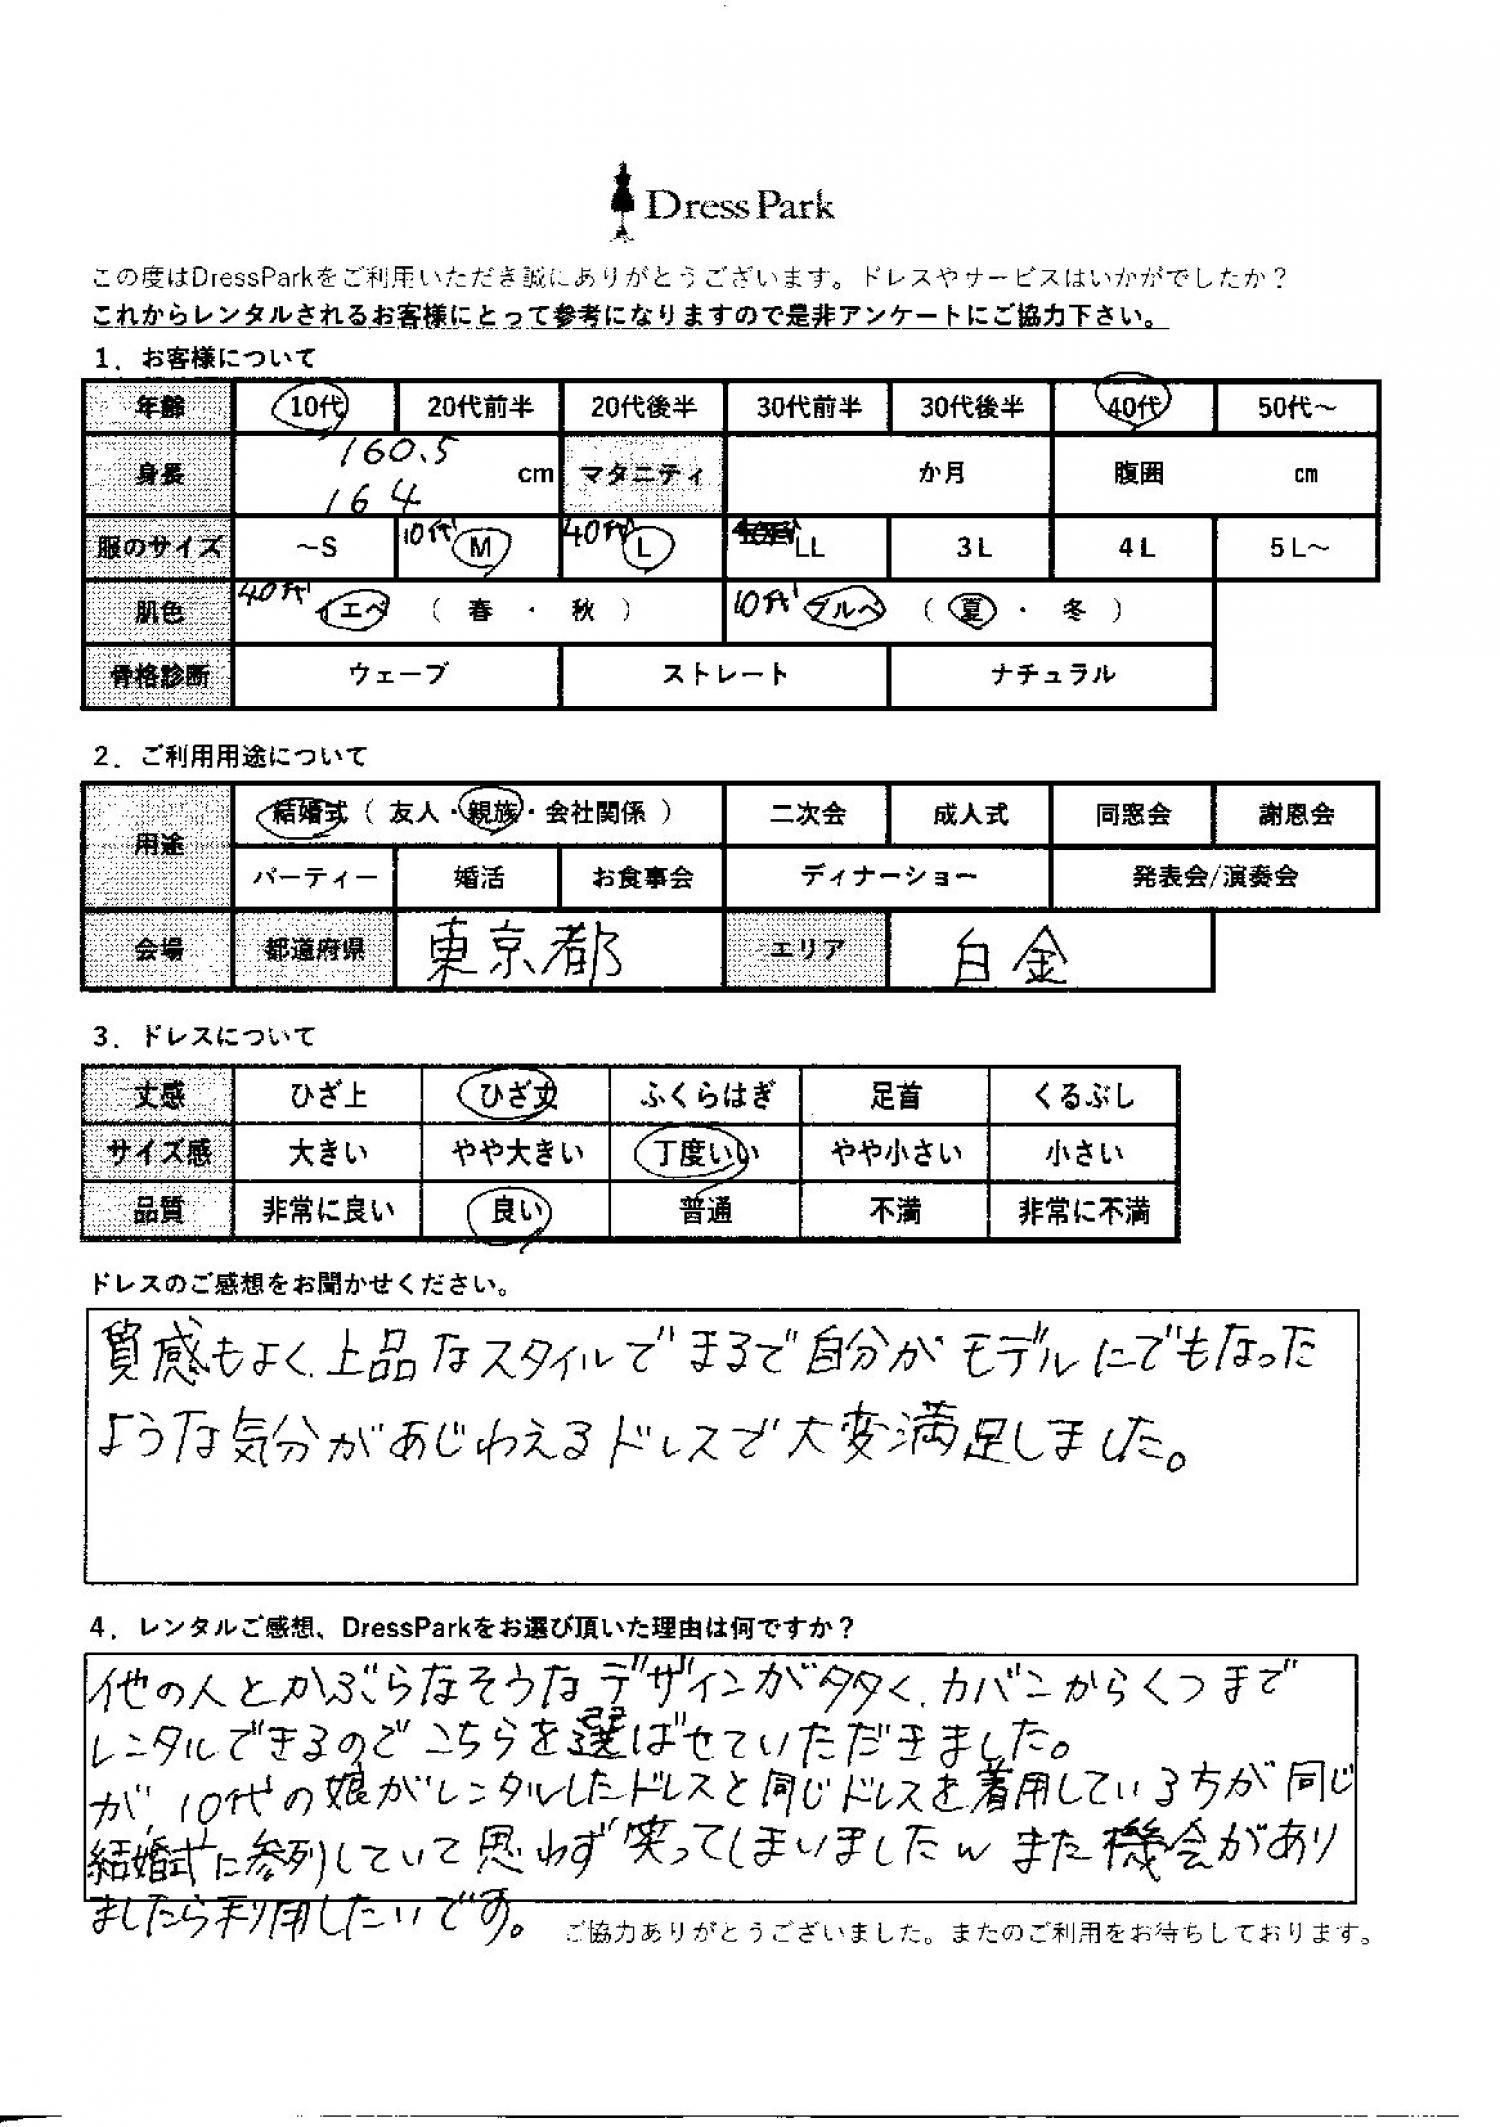 Dress Park
この度はDressParkをご利用いただき誠にありがとうございます。ドレスやサービスはいかがでしたか？
これからレンタルされるお客様にとって参考になりますので是非アンケートにご協力下さい。
1．お客様について
年齢 10代 20代前半 20代後半 30代前半 30代後半 40代 50代～
160.5
身長 cm マタニティ か月 腹囲 cm
164
服のサイズ ～S 10代 M 40代 L LL 3L 4L 5L～
肌色 40代 イエベ （ 春 ・ 秋 ） 10代 ブルベ （ 夏 ・ 冬 ）
骨格診断 ウェーブ ストレート ナチュラル
2．ご利用用途について
用途 結婚式（ 友人・親族・会社関係 ） 二次会 成人式 同窓会 謝恩会
パーティー 婚活 お食事会 ディナーショー 発表会/演奏会
会場 都道府県 東京都 エリア 白金
3．ドレスについて
丈感 ひざ上 ひざ丈 ふくらはぎ 足首 くるぶし
サイズ感 大きい やや大きい 丁度いい やや小さい 小さい
品質 非常に良い 良い 普通 不満 非常に不満
ドレスのご感想をお聞かせください。
質感もよく、上品なスタイルでまるで自分がモデルにでもなった
ような気分があじわえるドレスで大変満足しました。
4．レンタルご感想、DressParkをお選び頂いた理由は何ですか？
他の人とかぶらなそうなデザインが多く、カバンからくつまで
レンタルできるのでこちらを選ばせていただきました。
が、10代の娘がレンタルしたドレスと同じドレスを着用している方が同じ
結婚式に参列していて思わず笑ってしまいましたw また機会があり
ましたら利用したいです。
ご協力ありがとうございました。またのご利用をお待ちしております。